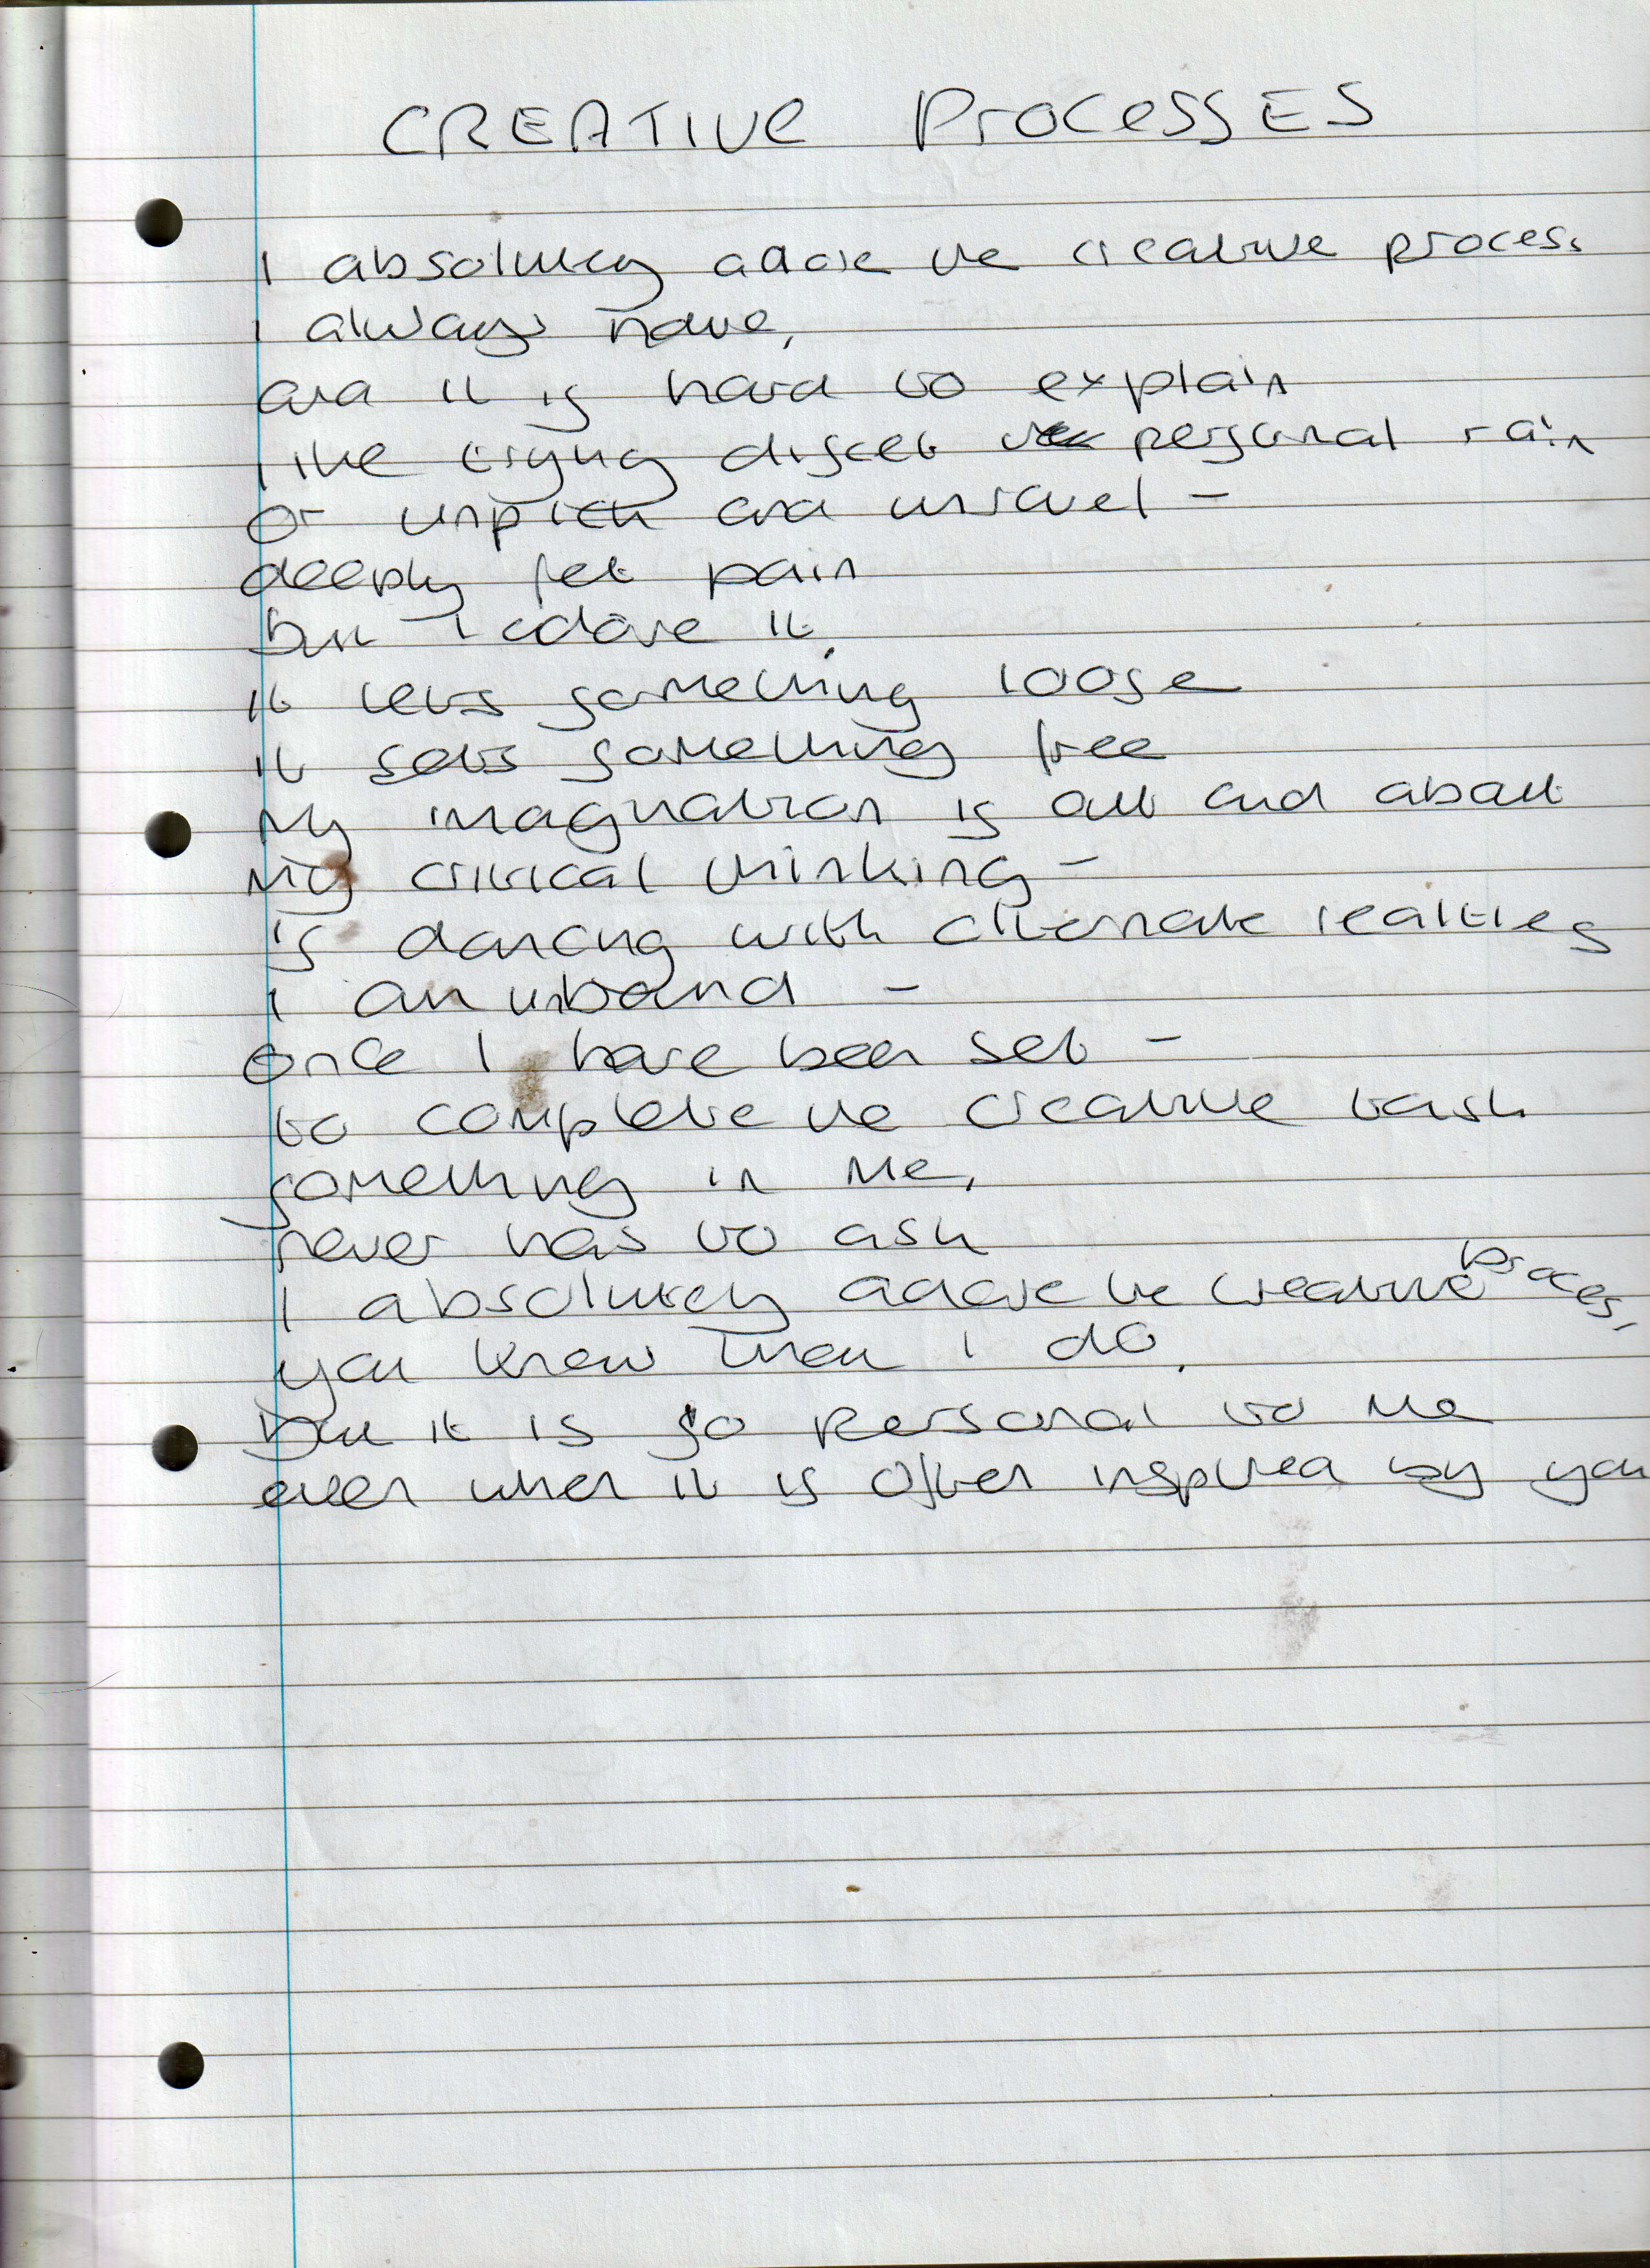 CREATIVE PROCESSES
I absolutely adore the creative process
I always have,
and it is hard to explain
like trying disect personal rain
or unpick and unravel -
deeply felt pain
but I adore it,
it lets something loose
it sets something free
My imagination is out and about
My critical thinking -
is dancing with alternate realities
I am unbound -
once I have been set -
to complete the creative task
something in me,
never has to ask
I absolutely adore the creative process,
you know that I do,
but it is so personal to me
even when it is often inspired by you